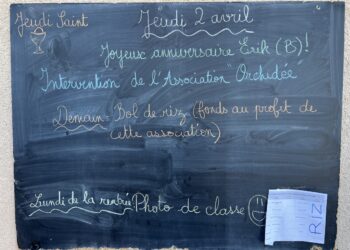 Jeudi Saint
Jeudi 2 avril
Joyeux anniversaire Erik (B)!
Intervention de l'Association "Orchidée"
Demain: Bol de riz (fonds au profit de
cette association)
Lundi de la rentrée Photo de classe
RIZ